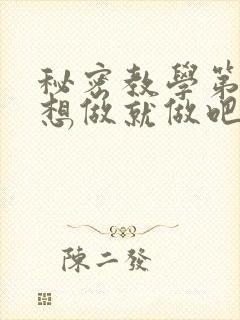 秘密教學第
想做就做吧
陳二發